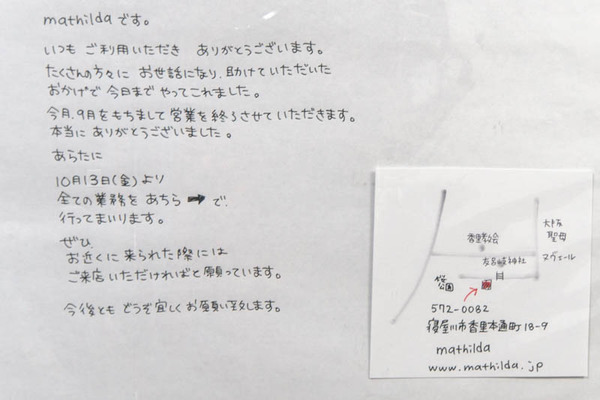 mathildaです。
いつも ご利用いただき ありがとうございます。
たくさんの方々に お世話になり、助けていただいた
おかげで 今日まで やってこれました。
今月、9月をもちまして 営業を 終らさせていただきます。
本当に ありがとうございました。
あらたに
10月13日(金)より
全ての業務を あちら ➡ で、
行ってまいります。
ぜひ、
お近くに 来られた際には
ご来店 いただければと 願っています。
今後とも どうぞ宜しく お願い致します。
香里教会
友呂岐神社
大阪
聖母
公園
572-0082
寝屋川市香里本通町18-9
mathilda
www.mathilda.jp